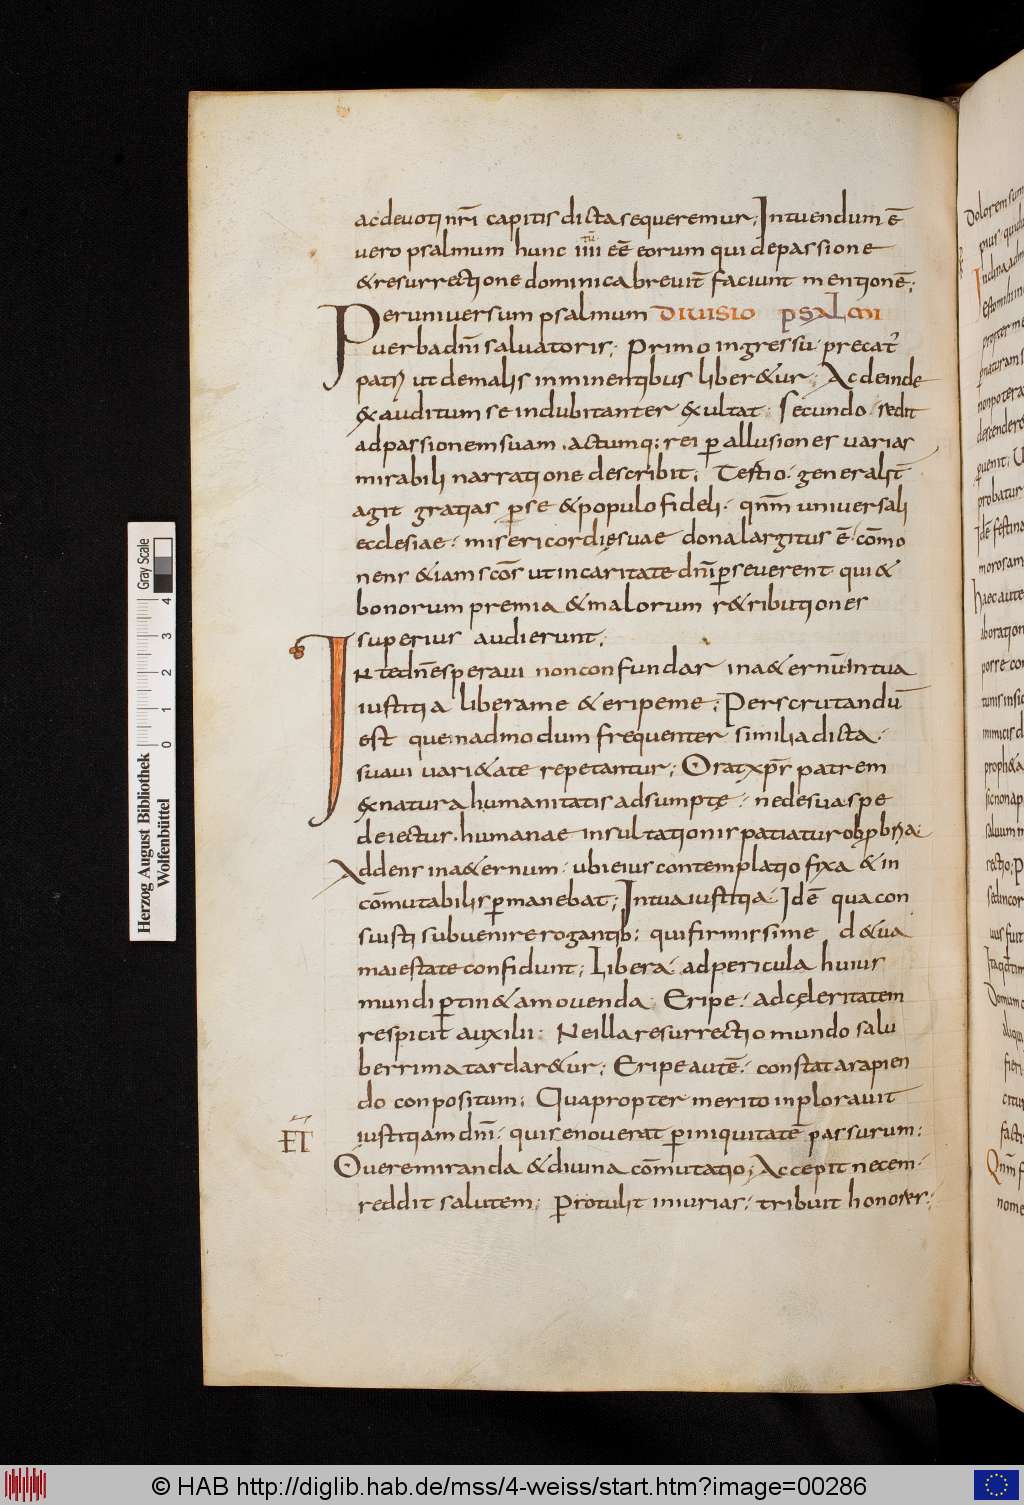 ac devoti nr̄i capitis dicta sequeremur; Intuendum ē
vero psalmum hunc iiii tū eē eorum qui de passione
& resurrectione dominica breviт̄ faciunt mentionē;
Per universum psalmum DIUISIO PSALMI
verba dn̄i salvatoris; Primo ingressu precatˀ
patrē ut de malis inminentibus liber&ur; Ac deinde
exauditum se indubitanter exultat; Secundo redit
ad passionem suam. actumq; rei ꝑ allusiones varias
mirabili narratione describit; Tertio. generalit̄
agit gratias ꝑ se & populo fideli. qn̄m universali
ecclesiae. misericordię suae dona largitus ē. cōmo
nens &iam scōs ut in caritate dn̄i ꝑseverent. qui &
bonorum premia & malorum r&ributiones
superius audierunt;
IN te dn̄e speravi non confundar in a&ernū In tua
iustitia libera me & eripe me; Perscrutandū
est quemadmodum frequenter similia dicta
suavi vari&ate repetantur; Orat xp̄s patrem
ex natura humanitatis adsumptę. ne de sua spe
deiectus. humanae insultationis patiatur obprbria;
Addens in a&ernum. ubi eius contemplatio fixa & in
cōmutabilis ꝑmanebat; In tua iustitia. Idē qua con
suisti subvenire rogantib; qui firmissime d& ua
maiestate confidunt; Libera. ad pericula huius
mundi ꝑtin& amovenda; Eripe. ad celeritatem
respicit auxilii. Ne illa resurrectio mundo salu
berrima tardar&ur; Eripe autē. constat a rapien
do conpositum; Quapropter merito inploravit
iustitiam dn̄i. qui se noverat ꝑ iniquitatē passurum;
ET
O vere miranda & divina cōmutatio; Accepit necem.
reddit salutem; Protulit iniurias. tribuit honores;
Herzog August Bibliothek
Wolfenbüttel
0 1 2 3 4
Gray Scale
© HAB http://diglib.hab.de/mss/4-weiss/start.htm?image=00286